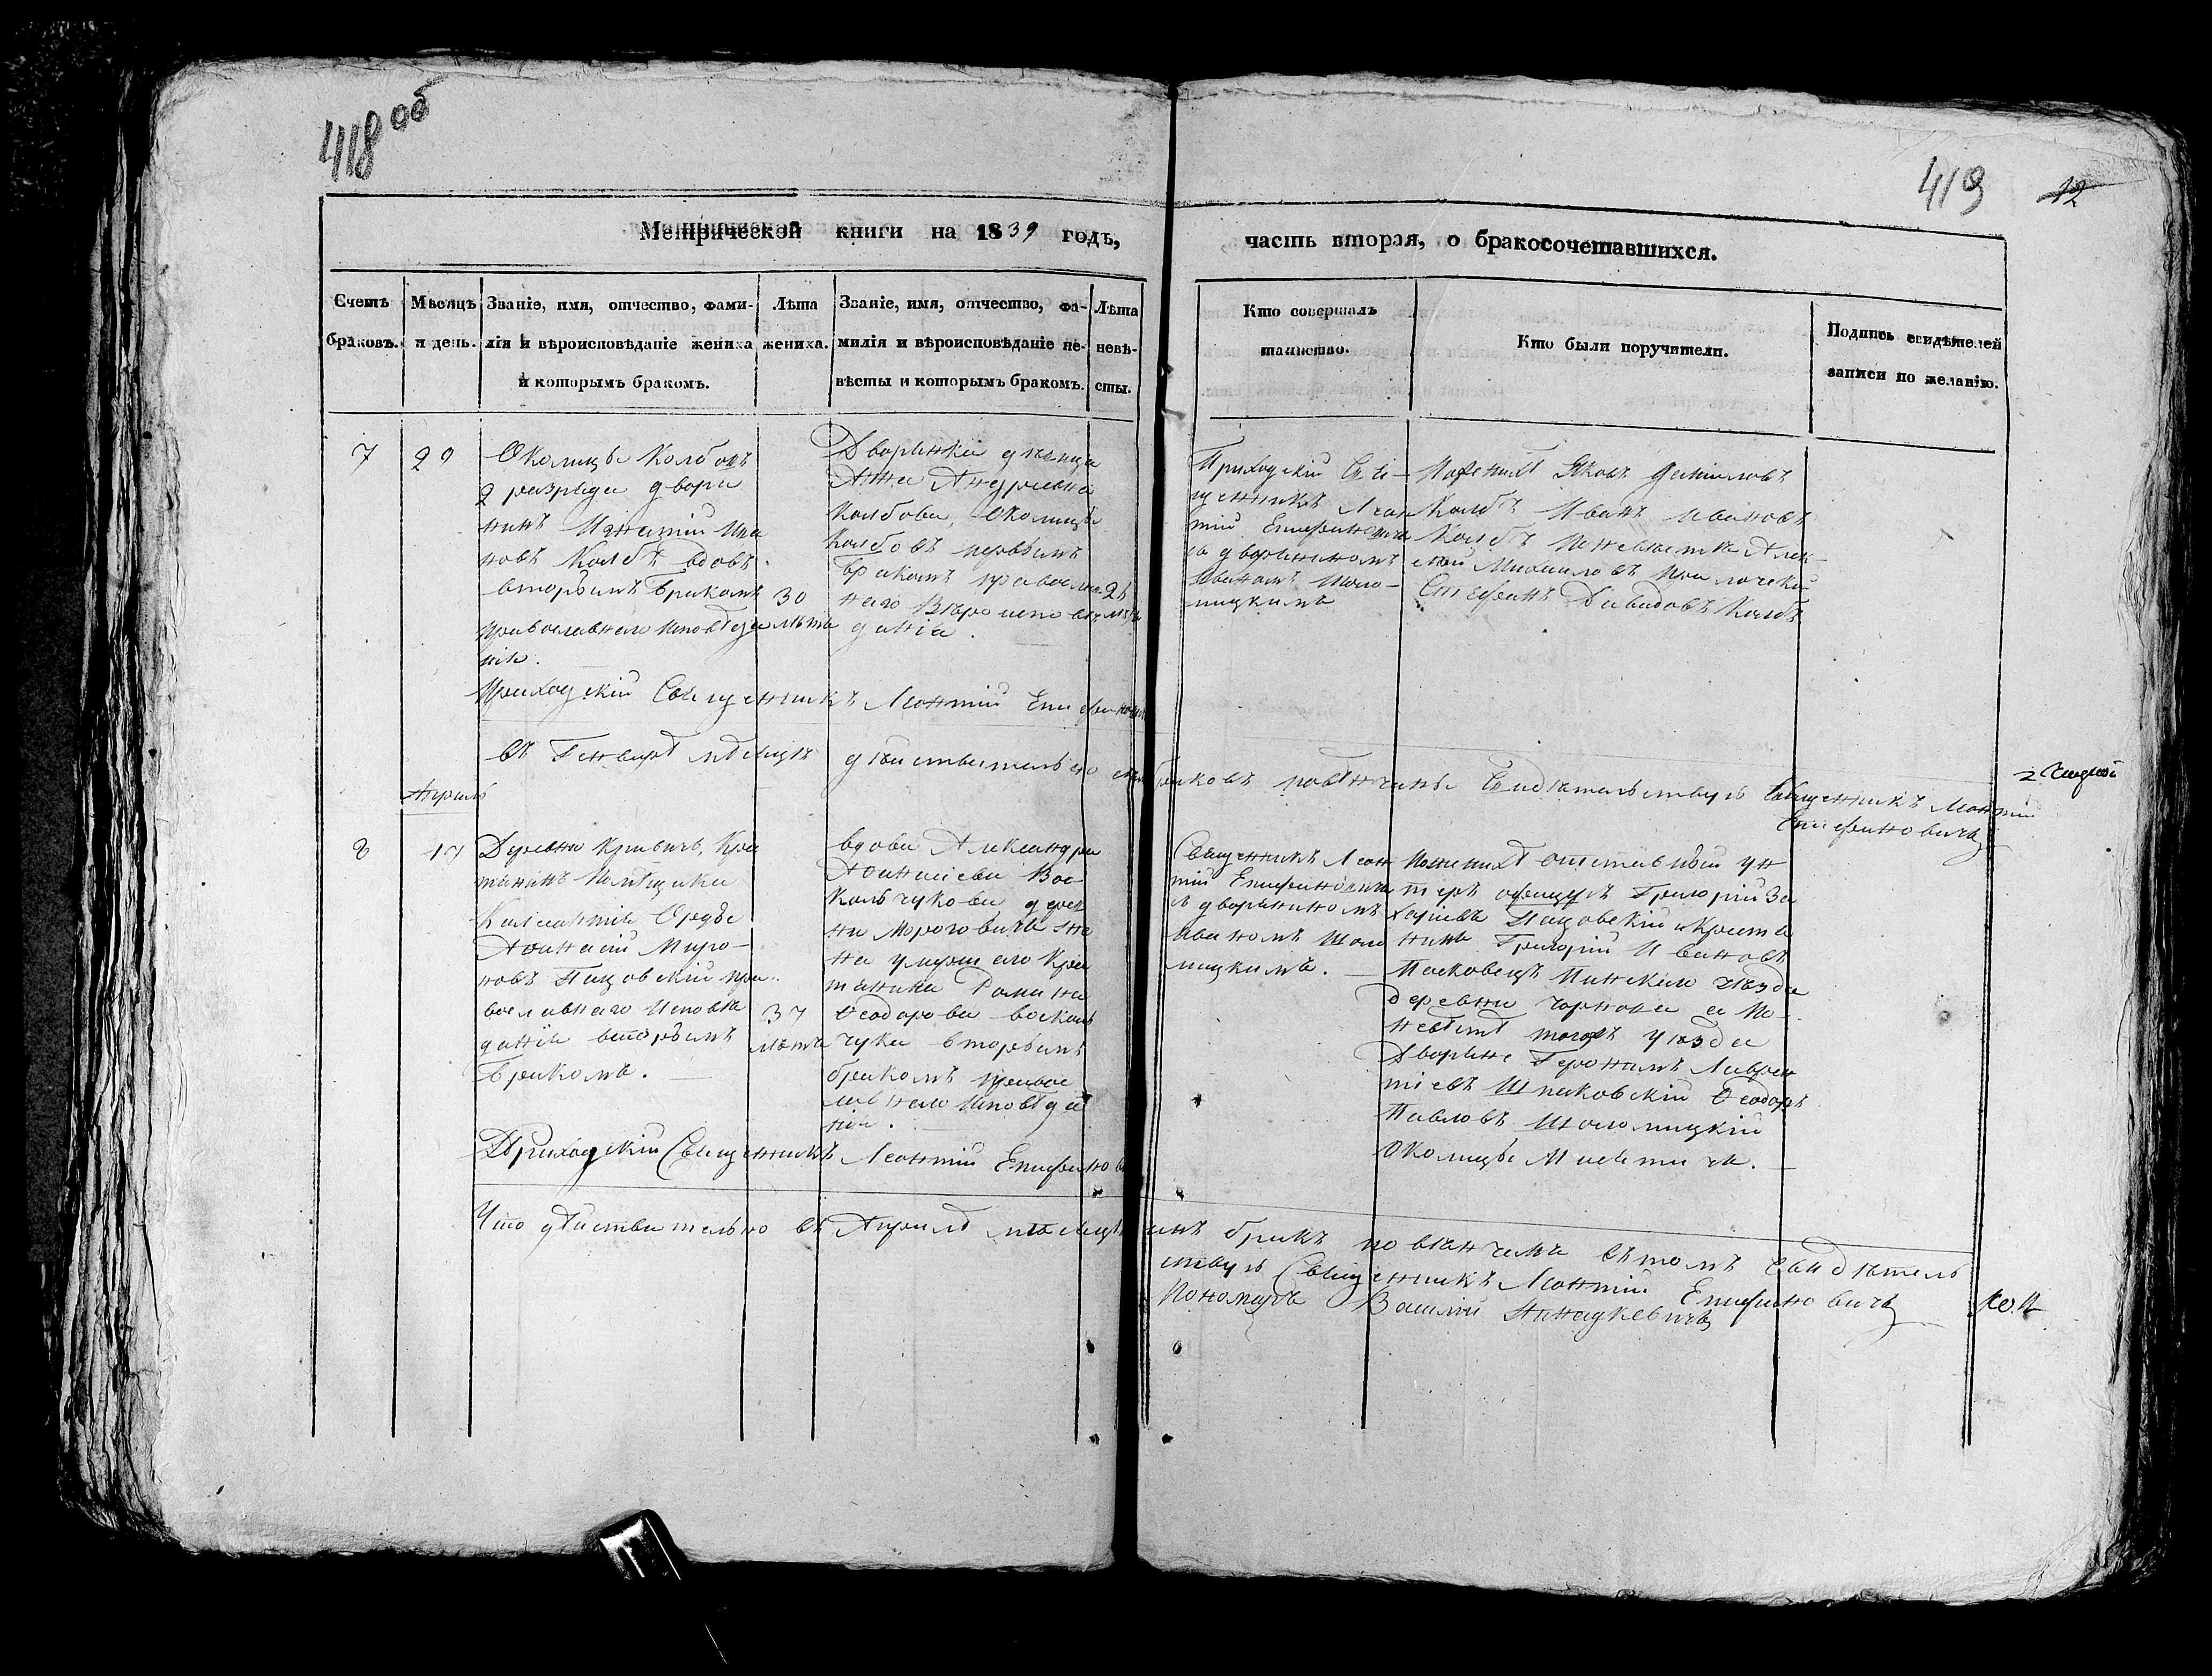 418 об
419
12
Метрической книги на 1839 годъ,
часть вторая, о бракосочетавшихся.
Счетъ браковъ.
Мѣсяцъ и день.
Званіе, имя, отчество, фами-
лія и вѣроисповѣданіе жениха
и которымъ бракомъ.
Лѣта жениха.
Званіе, имя, отчество, фа-
милія и вѣроисповѣданіе не-
вѣсты и которымъ бракомъ.
Лѣта невѣ-
сты.
Кто совершалъ
таинство.
Кто были поручители.
Подпись свидѣтелей
записи по желанію.
7
29
Околицы Колбовъ
2 разряда дворя
нинъ Игнатій Ива
новъ Колбъ вдовъ
вторымъ бракомъ
православнаго исповѣда
нія.
30
лѣтъ
Дворянка дѣвица
Анна Андреевна
Колбова, Околицы
Колбовъ первымъ
бракомъ православ
наго Вѣроисповѣ
данія.
Приходскій Свя-
щенникъ Леон
тій Епифановичъ
съ дворяниномъ
Иваномъ Шоло-
мицкимъ
Поженихѣ Яковъ Даниловъ
Колбъ Иванъ Ивановъ
Колбъ Поневѣстѣ Алек-
сѣй Михаиловъ
Стефанъ Давидовъ Колбъ
Приходскій Священникъ Леонтій Епифановичъ
въ Генварѣ мѣсяцѣ дѣйствительно браковъ повѣнчаны Свидѣтельствуъ Священникъ Леонтій
Епифановичъ
Апрѣль
8
17
Деревни Кривичъ, Кре
стянинъ Помѣщика
Каликсантія Орды
Аѳанасій Миро-
новъ Пацовскій пра-
вославнаго исповѣ
данія вторымъ
бракомъ.
37
лѣтъ
вдова Александра
Аѳанасіева Вос
кольчукова дерев
ни Мороговичъ же
на умершаго Кре
стянина Романа
Ѳеодорова Восколь
чука вторымъ
бракомъ правос
лавнаго исповѣда
нія.
Священникъ Леон
тій Епифановичъ
съ дворяниномъ
Иваномъ Шоло
мицкимъ.
Поженихѣ отставный ун
теръ офицеръ Григорій За
харіевъ Пацовскій и Крестя
нинъ Григорій Ивановъ
Пасковецъ Пинскаго уѣзда
деревни а по
невѣстѣ тогожъ уѣзда
Дворяне Геронимъ Лаврен
тіевъ Шпаковскій Ѳеодоръ
Павловъ Шоломицкій
околицы
Приходскій Священникъ Леонтій Епифановичъ
Что дѣйствительно въ Апрѣлѣ мѣсяцѣ одинъ бракъ повѣнчанъ вътомъ Свидѣтель
ствуъ Священникъ Леонтій Епифановичъ
Пономарь Василій